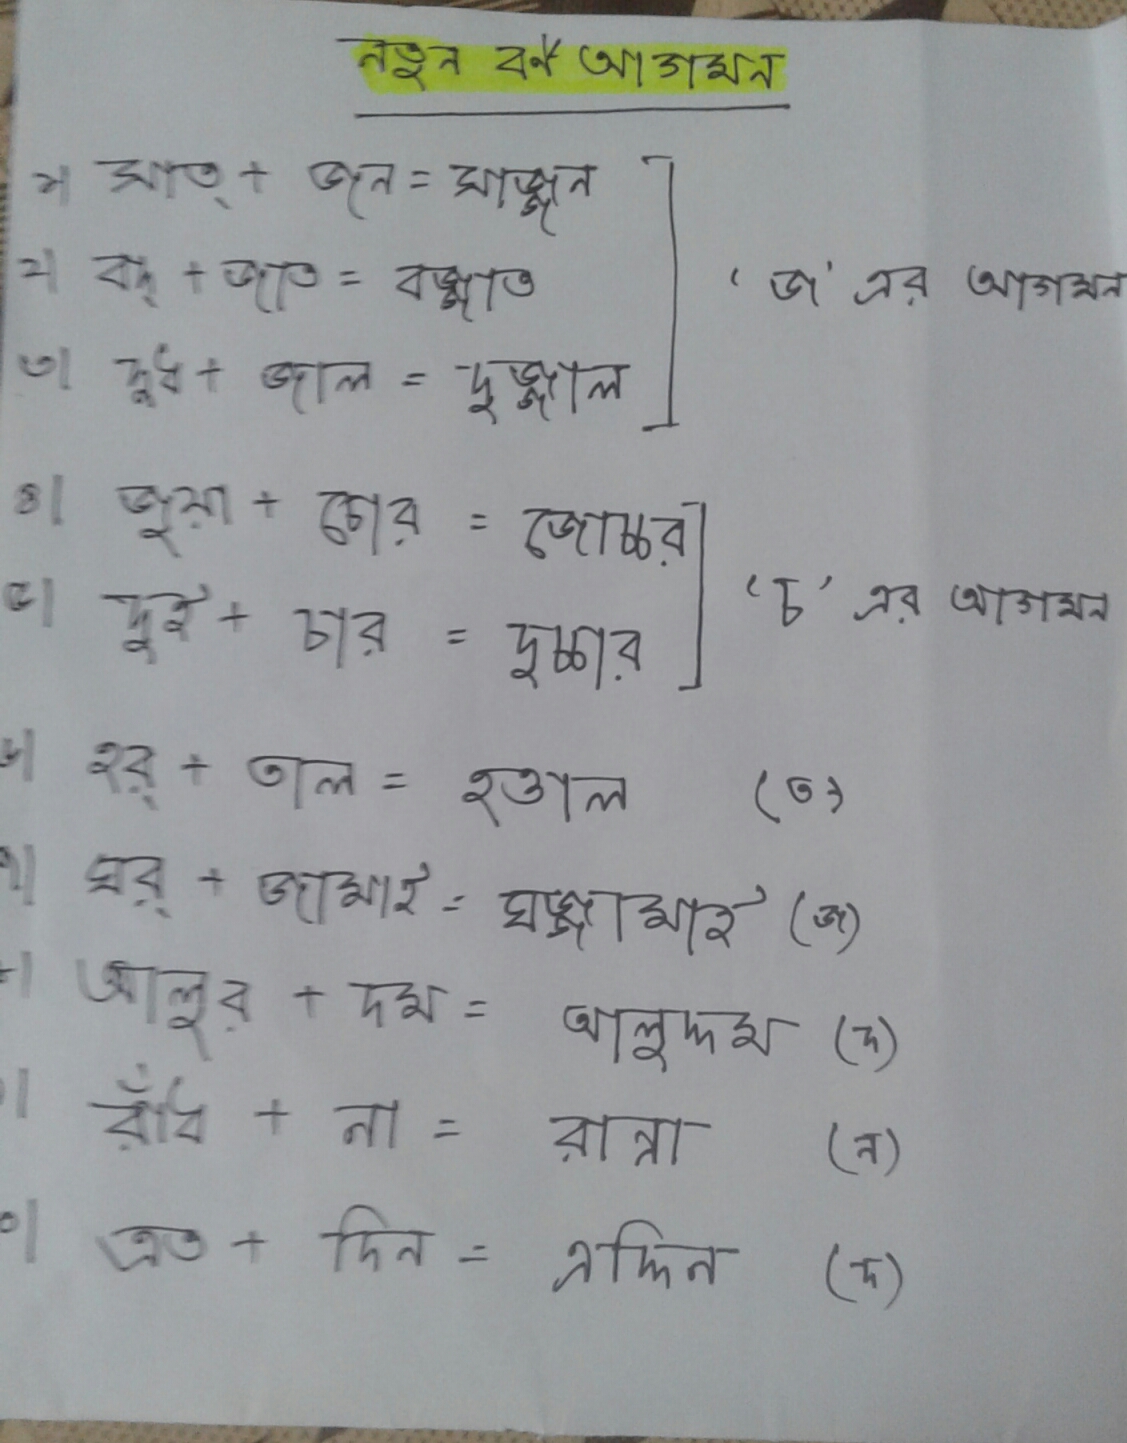 নতুন বর্ণ আগমন
১| সাত্ + জন = সাজ্জন
২| বদ্ + জাত = বজ্জাত
৩| দুধ + জাল = দুজ্জাল
'জ' এর আগমন
৪| জুয়া + চোর = জোচ্চর
৫| দুই + চার = দুচ্চার
'চ' এর আগমন
৬| হর্ + তাল = হত্তাল (ত)
৭| ঘর্ + জামাই = ঘজ্জামাই (জ)
৮| আলুর + দম = আলুদ্দম (দ)
৯| রাঁধ + না = রান্না (ন)
১০| এত + দিন = এদ্দিন (দ)